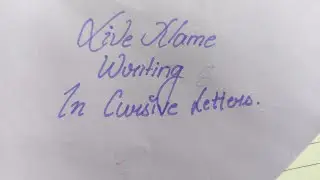 Live Name
Writing
In Cursive Letters.